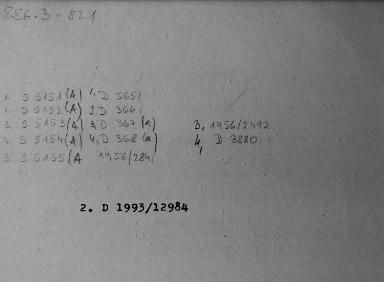 EEG.3-821
1. S 5151(A) 1, D 3651
2. S 5152(A) 2, D 366
3. S 5153(A) 3, D 367(a) 3, 1956/2492
4. S 5154(A) 4, D 368(a) 4, D 3880
5. S 5155(A 1956/284
2. D 1993/12984